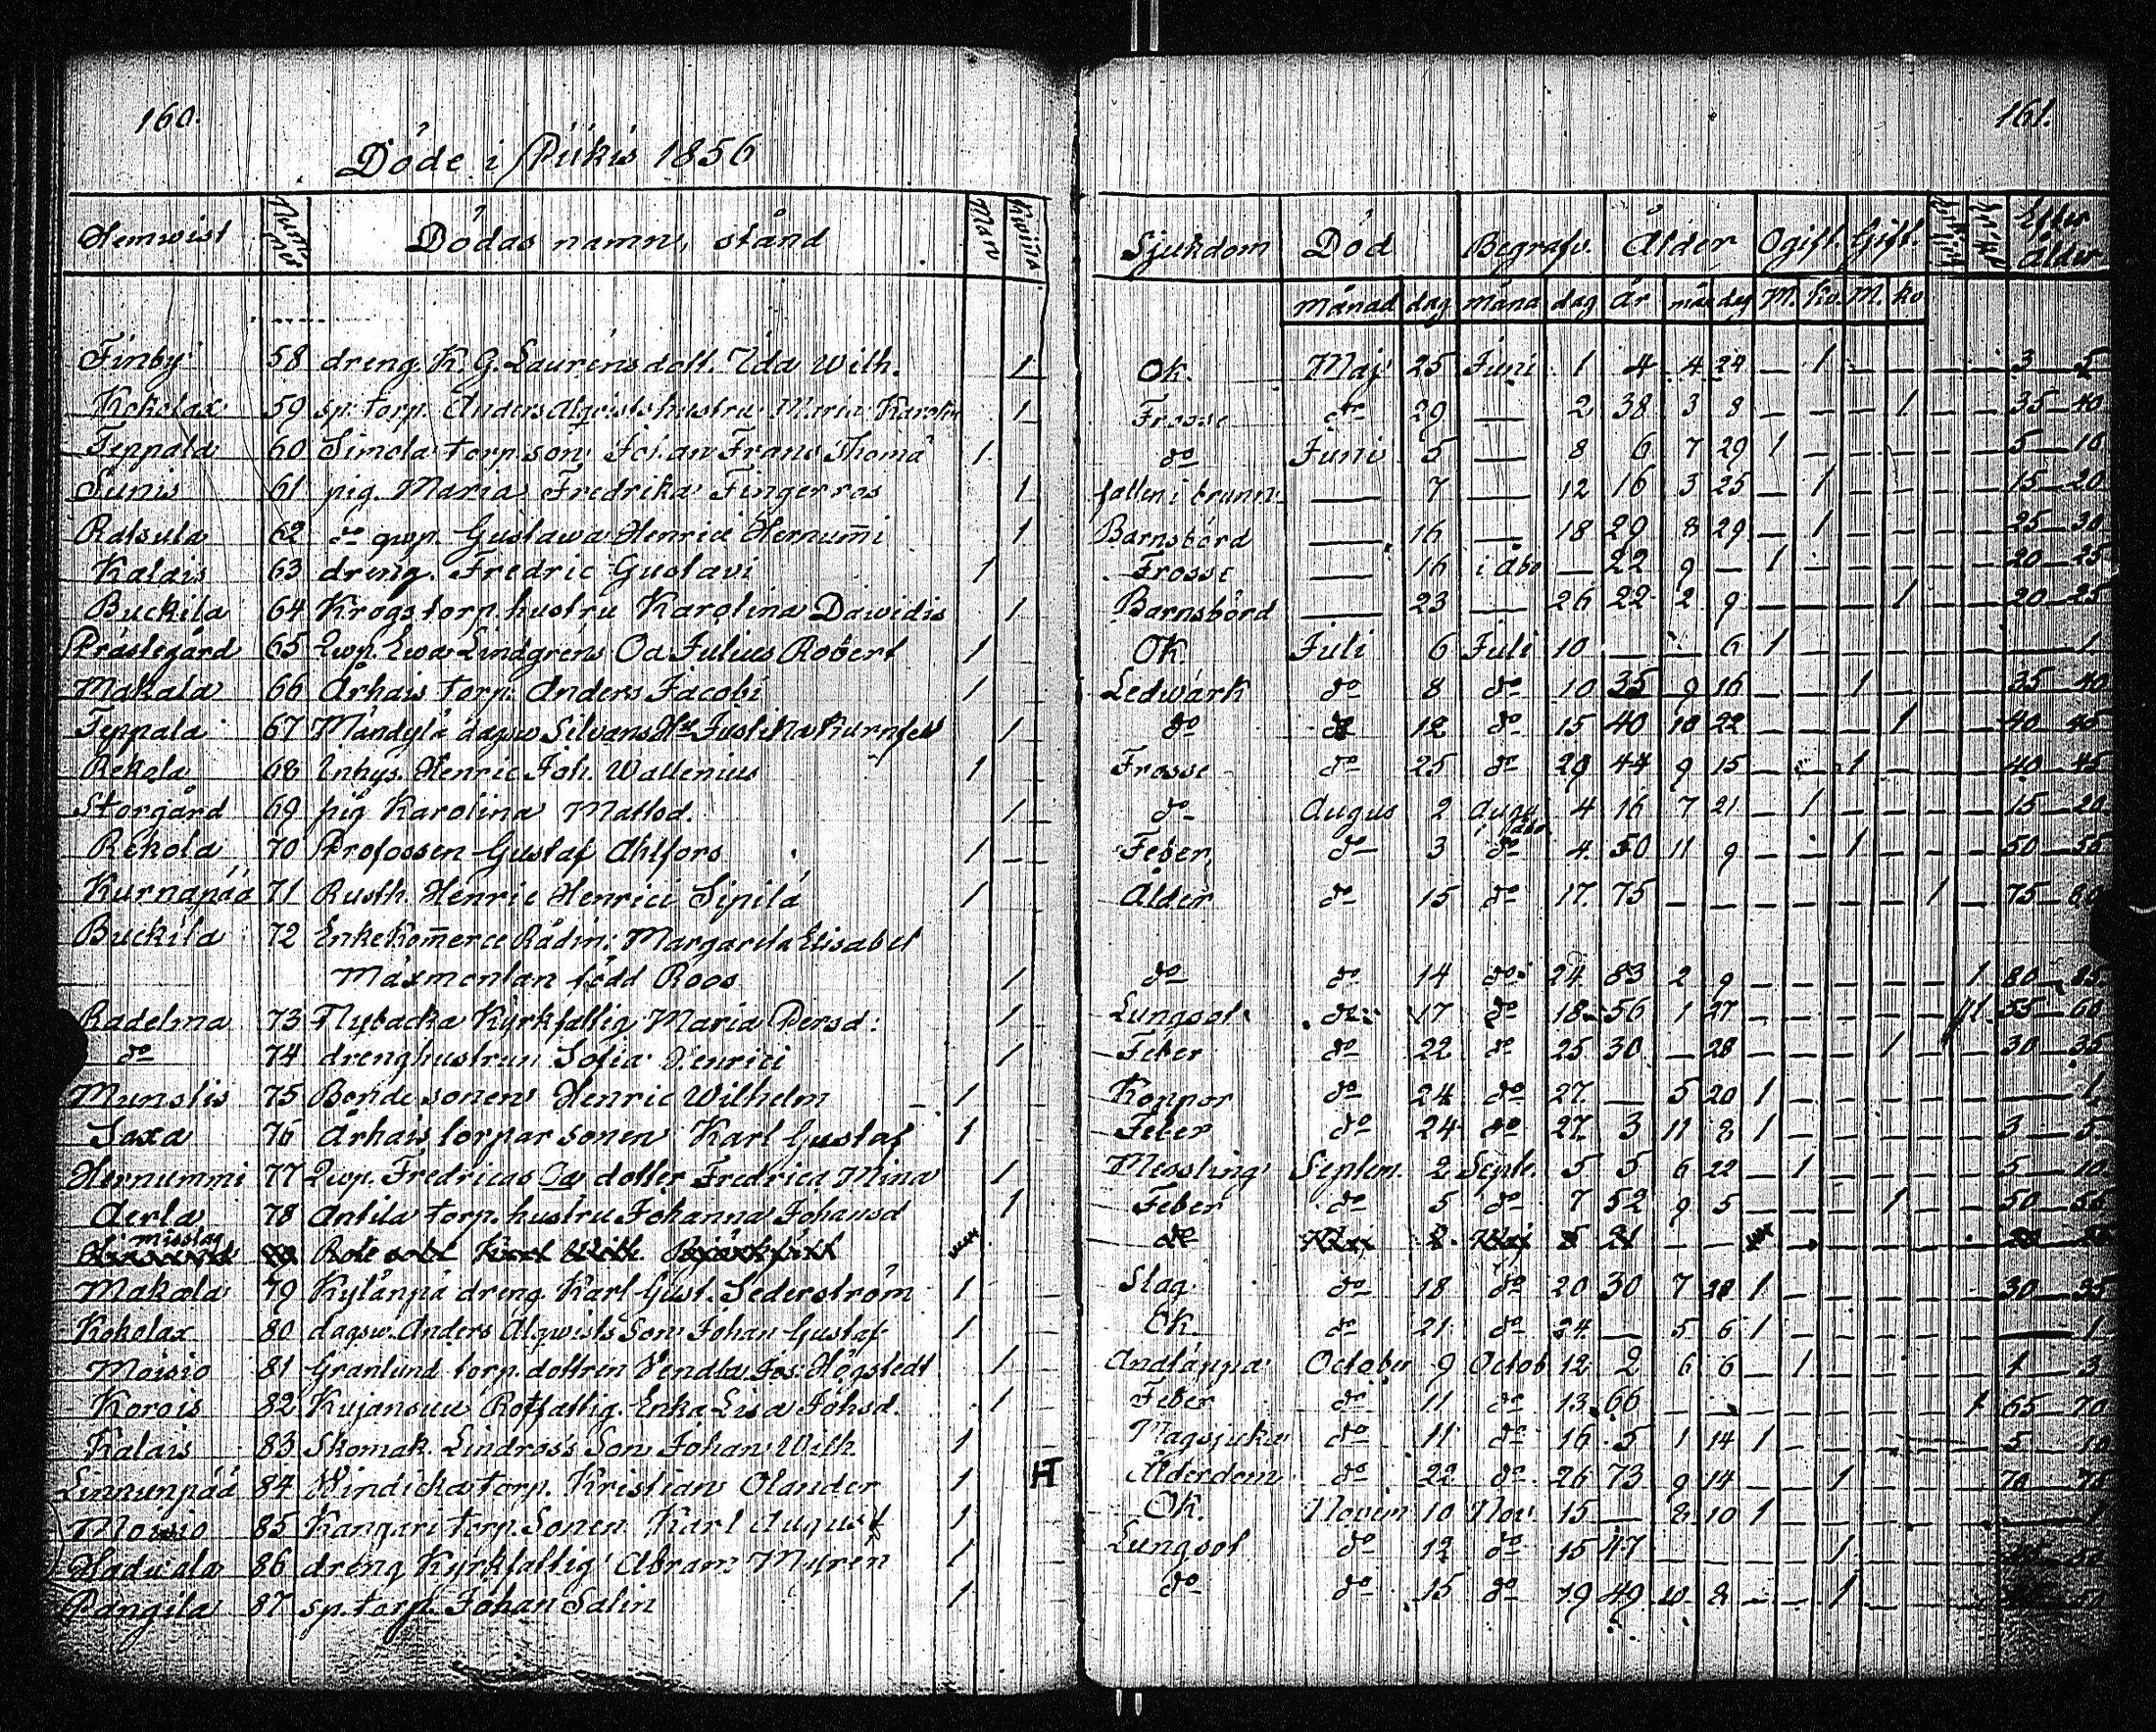 160.
161.
Döde i Piikis 1856
Hemwist Numer Dödas namn, stånd Man Kvins Sjukdom Död Begrafn. Ålder Ogift. Gift. Efter Ålder
månad dag måna dag år mån dag M. Kv. M. Kv
Finby 58 dreng. K. G. Laurens dott. Ida Wilh. 1 Ok. Maj 25 Juni 1 4 4 24 — 1 — — — — 3—5
Kokolax 59 sp. torp. Anders Alqvists hustru Maria Karolin 1 Frosse do 29 — 2 38 3 8 — — — 1 — — 35—40
Teppala 60 Simola torp son Johan Frans Thoma 1 do Juni 5 — 8 6 7 29 1 — — — — — 5—10
Sunis 61 pig. Maria Fredrika Fingerroos 1 fallen i brunn — 7 — 12 16 3 25 — 1 — — — — 15—20
Ratsula 62 do qwp. Gustawa Henrici Hernum̄i 1 Barnsbörd — 16 — 18 29 8 29 — 1 — — — — 25—30
Kalais 63 dreng. Fredric Gustavi 1 Frosse — 16 i åbo — 22 9 — 1 — — — — — 20—25
Buckila 64 Krogstorp. hustru Karolina Dawidis 1 Barnsbörd — 23 — 26 22 2 9 — — — 1 — — 20—25
Prästegård 65 Qwp. Ewa Lindgréns Oa Julius Robert 1 Ok. Juli 6 Juli 10 — — 6 1 — — — — — — 1
Makala 66 Århais torp. Anders Jacobi 1 Ledwärk do 8 do 10 35 9 16 — — 1 — — — 35—40
Teppala 67 Mändylä dagsw Silvans Hu Justina Kurnfelt 1 do do 12 do 15 40 10 22 — — — 1 — — 40—45
Rekola 68 Inhys. Henric Joh. Wallenius 1 Frosse do 25 do 29 44 9 15 — — 1 — — — 40—45
Storgård 69 pig Karolina Matlsd. 1 do Augus 2 Augu 4 16 7 21 — 1 — — — — 15—20
Rekola 70 Profossen Gustaf Ahlfors 1 Feber do 3 i åbo do 4. 50 11 9 — — 1 — — — 50—55
Kurnapää 71 Rusth. Henric Henrici Sipilä 1 Ålder do 15 do 17. 75 — — — — — — 1 — 75—80
Buckila 72 Enke Kom̄erce Rådin: Margareta Elisabet
Maxmontan född Roos 1 do do 14 do 24 83 2 9 — — — — — 1 80—85
Radelma 73 Nybacka Kyrkfattig Maria Persd: 1 Lungsot do 17 do 18 56 1 27 — — — — — 1. 55—60
do 74 drenghustrun Sofia Henrici 1 Feber do 22 do 25 30 — 28 — — — 1 — — 30—35
Munstis 75 Bondesonen Henric Wilhelm 1 Koppor do 24 do 27. — 5 20 1 — — — — — — 1
Saxa 76 Århais torpar sonen Karl Gustaf 1 Feber do 24 do 27. 3 11 8 1 — — — — — 3—5
Hernummi 77 Qwp. Fredricas Oa dotter Fredrica Mina 1 Messling Septem. 2 Septe. 5 5 6 22 — 1 — — — — 5—10
Aerla 78 Antila torp. hustru Johanna Johansd 1 Feber do 5 do 7 52 9 5 — — — 1 — — 50—55
misstag
Makala 79 Kylänpä dreng. Karl Gust. Sederström 1 Slag. do 18 do 20 30 7 28 1 — — — — — 30—35
Kokolax 80 dagsw. Anders Alqwists Son Johan Gustaf 1 Ok. do 21 do 24 — 5 6 1 — — — — — — 1
Moisio 81 Granlund torp. dottren Vendla Jos. Högstedt 1 Andtäppa October 9 Octob 12 2 6 6 — 1 — — — — 1—3
Korois 82 Kujansuu Rotfattig. Enka Lisa Johsd. 1 Feber do 11 do 13. 66 — — — — — — — 1 65—70
Kalais 83 Skomak. Lindros's Son Johan Wilh. 1 Magsjuka do 11 do 16 5 1 14 1 — — — — — 5—10
Linnunpää 84 Windicka torp. Kristian Olander 1 H Ålderdom do 22 do 26 73 9 14 — — 1 — — — 70—75
Moisio 85 Kangari torp. Sonen Karl August 1 Ok. Novem 10 Nov 15 — 8 10 1 — — — — — — 1
Hadvala 86 dreng Kyrkfattig Abram Myrén 1 Lungsot do 12 do 15 47 — — — — 1 — — —
Pangila 87 sp. torp. Johan Salin 1 do do 15 do 19 49 10 8 — — 1 — — —